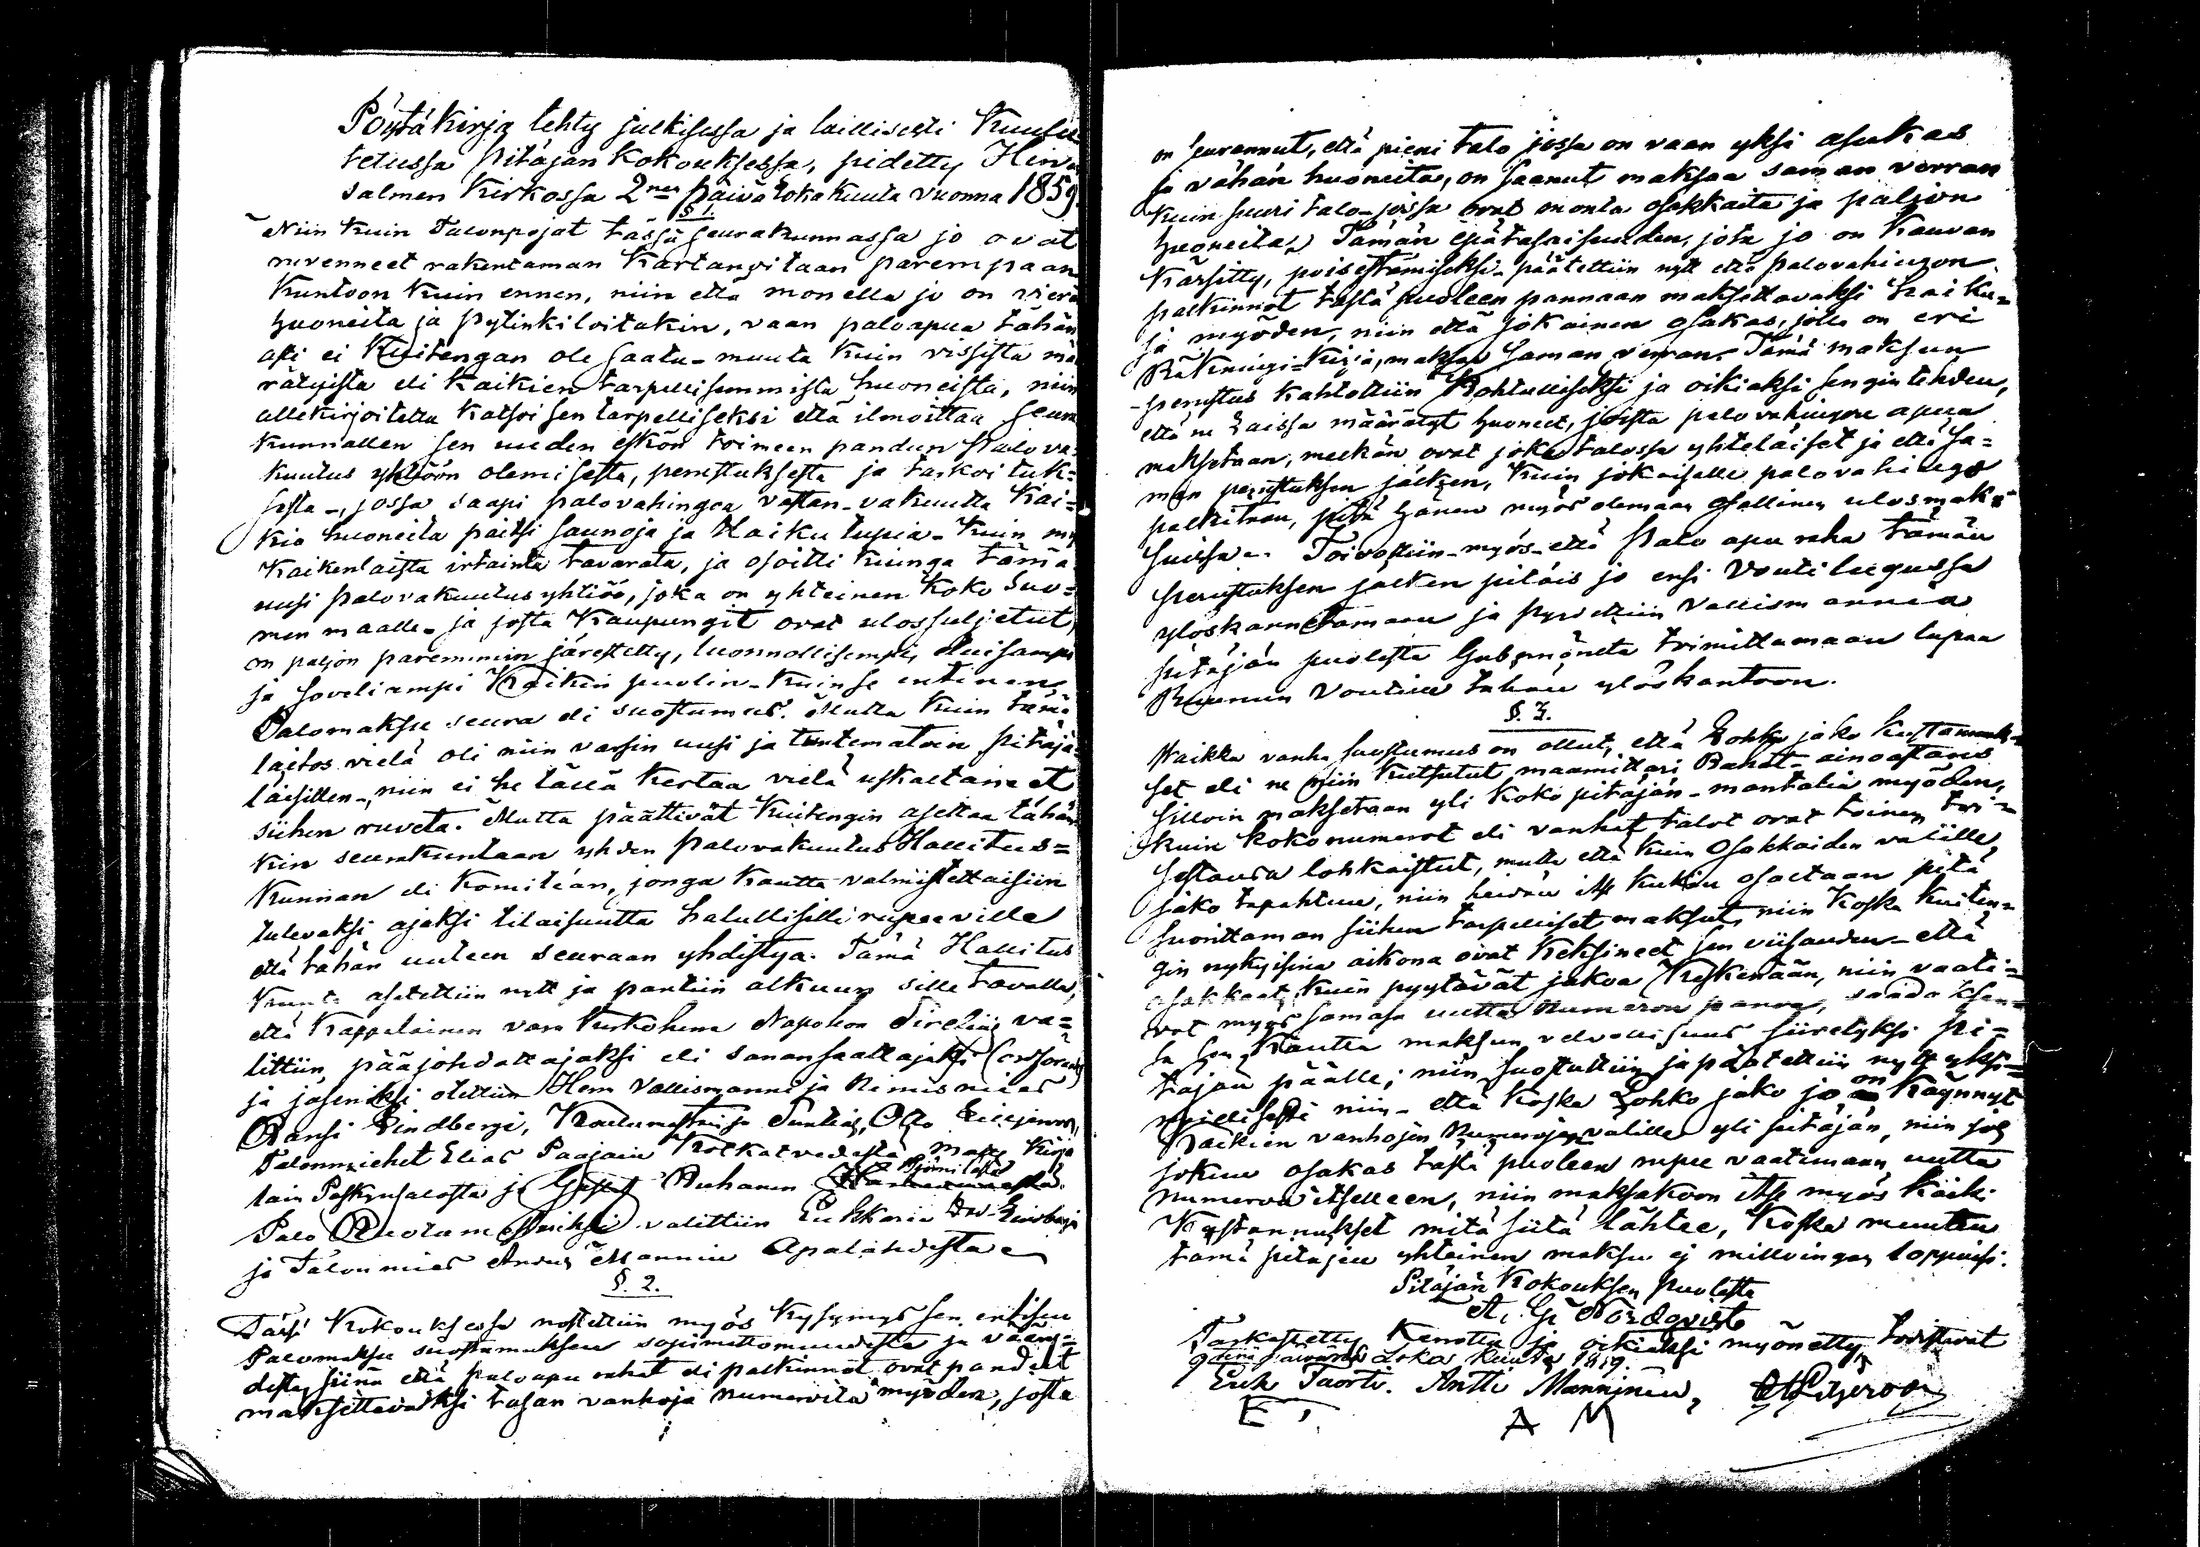 Pöytäkirja tehty julkisessa ja laillisesti Kuulu
tetussa Pitäjän Kokouksessa, pidetty Hirven
salmen Kirkossa 2nen päivä lokakuuta vuonna 1859.
§ 1.
Niin kuin Talonpojat tässä seurakunnassa jo ovat
ruvenneet rakentaman Kartanoitaan parempaan
Kuntoon kuin ennen, niin että monella jo on
huoneita ja pytinkiloitakin, vaan paloapua tähän
asti ei Kuitengan ole saatu muuta kuin vississtä mä
rätyistä eli kaikien tarpellisemmista huoneista, niin
allekirjoitettu katsoi sen tarpelliseksi että ilmoittaa seura
kunnallen sen uuden toimeen pandun Palova
kuutus yhtiöön olemisesta, perustuksesta ja tarkoituk=
sesta, jossa saapi palovahingoa vastan vakuutta Kai=
kia huoneita paitsi saunoja ja Haiku tupia Kuin my
Kaikenlaista irtainta tavarata, ja osoitti kuinga tämä
uusi Palovakuutus yhtiöö, joka on yhteinen Koko Suo=
men maalle ja josta Kaupungit ovat ulossuljetut,
on paljon paremmin järestetty, luonnollisempi,
ja soveliampi Kaikin puolin kuin se entinen
Palomaksu seura eli suostumus. Mutta kuin tämä
laitos vielä oli niin varsin uusi ja tuntematoin Pitäjä
läisillen, niin ei he tällä kertaa vielä uskaltaneet
siihen ruveta. Mutta päättivät Kuitengin asettaa tähän
kin seurakuntaan yhden Palovakuutus Hallitus=
Kunnan eli Komitean, jonga kautta valmistettaisiin
tulevaksi ajaksi tilaisuutta halullisille rupeeville
että tähän uuteen seuraan yhdistyä. Tämä Hallitus
Kunta asetettiin nytt ja pantiin alkuun sille tavalla,
että Kappalainen vara Kirkoherra Napoleon Sirelius va=
littiin pääjohdattajaksi eli sanansaattajaksi
ja jäseniksi otettiin Herra Vallismanni ja Nimismies
Lindbergi,
Talonmiehet Elias Paajain Kotkatvedestä, Matti
lain Pöskynsalosta ja Ruhanen
Palo valittiin Lukkaria
ja Talon mies Manninen Apalahdesta
§. 2.
Täsä Kokouksessa nostettiin myös Kysymys sen entisen
Palomaksu suostumuksen sopimattomuudesta ja vääry=
destä, siinä että paloapu rahat eli palkinnot ovat pandut
maksettavaksi tasan vanhoja numeroita myöden, josta
on seurannut, että pieni talo jossa on vaan yksi asukas
ja vähän huoneita, on saanut maksaa saman verran
kuin suuri talo jossa ovat monta osakkaita ja paljon
huoneita. Tämän epätasaisuuden, jota jo on kauvan
Kärsitty, poisestämiseksi päätettiin nytt että palovahingon
palkinnot tästä puoleen pannaan maksettavaksi
ja myöden, niin että jokainen osakas, jolla on eri
Räkningi-Kirja, maksaa saman verran. Tämä maksun
perustus kahtottiin Kohtulliseksi ja oikiaksi sengin tähden,
että ne laissa määrätyt huoneet, joista palovahingon apua
maksetaan, ovat joka talossa yhteläiset ja että sa=
man perustuksen jälken, kuin jokaiselle palovahingo
palkitaan, pitä hänen myös oleman osallinen ulosmak
suissa. Toivottiin myös että Palo apu raha tämän
perustuksen jälken pitäis jo ensi Vouti
ylöskannettamaan ja pyydettiin Vallismannia
pitäjän puolesta toimittamaan lupaa
Kruunun Voutille tähän ylöskantoon.
§. 3.
Vaikka vanha suostumus on ollut, että Lohko jako Kustannuk=
set eli ne niin kutsutut maamittari Rahat ainoastans
silloin maksetaan yli koko pitäjän mantalia myöden,
kuin kokonumerot eli vanhat talot ovat toinen toi=
sestansa lohkaistut, mutta että kuin Osakkaiden välille
jako tapahtuu, niin heidän itse kukin osaltaan pitä
suorittaman siihen tarpelliset maksut, niin koska kuiten=
gin nykyisinä aikona ovat keksineet sen viisauden että
osakkaat, kuin pyytävät jakoa Keskenään, niin vaati=
vat myös samasa uutta Numeron panoa, saada
sa sen kautta maksun velvollisuus siiretyksi Pi=
täjän päälle; niin suostuttiin ja päätettiin nytt yksi=
mielisesti niin että koska Lohko jako jo on käynnyt
Kaikien vanhojen Numeroiden välille yli pitäjän, niin jos
jokuu osakas tästä puoleen rupee vaatimaan uutta
Numeroa itselleen, niin maksakoon itse myös kaiki
Kustannukset mitä siitä lähtee, koska muutoin
tämä pitäjän yhteinen maksu ej milloingan loppuisi.
Pitäjän Kokouksen Puolesta
A. G. Nordqvist
Tarkastetty Kerrottu ja oikiaksi myönetty todistavat
Loka kuuta 1859.
Erik Taorti. Antti Manninen,
E T A M